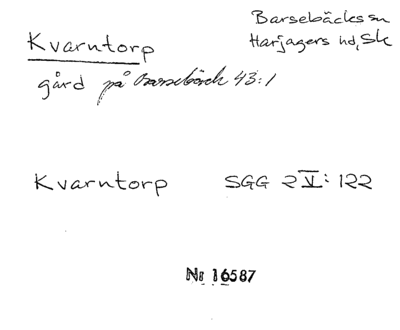 Barsebäcks sn
Kvarntorp
Harjagers hd, Sk
gård på Barsebäck 43:1
Kvarntorp SGG 2 V: 122
Nr 16587